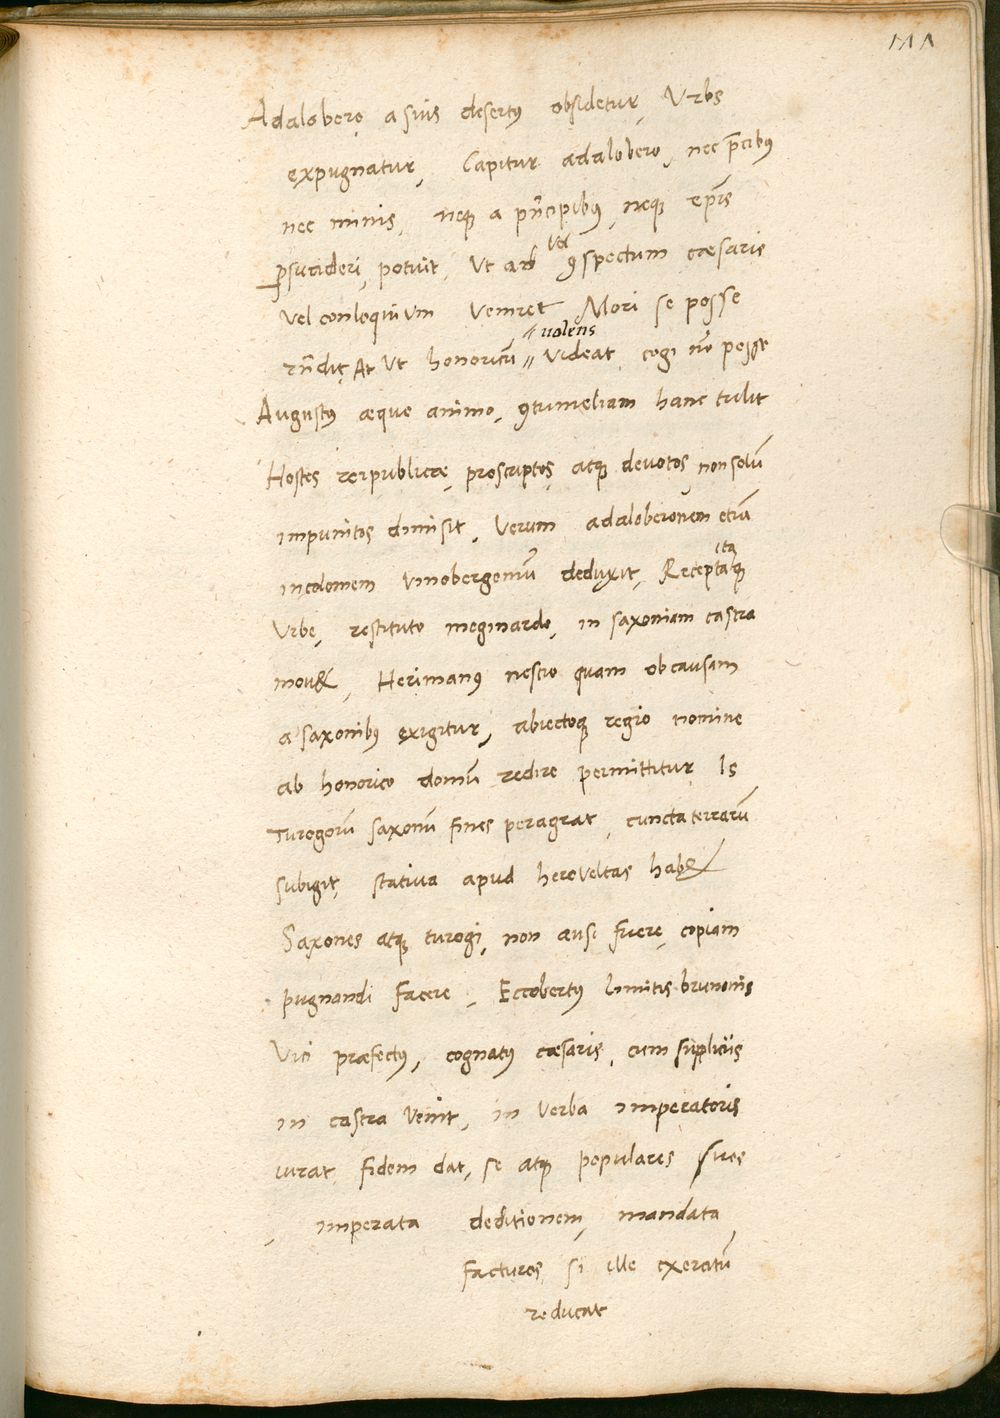 111
Adalobero, a suis desertꝰ obsidetur, Urbs
expugnatur, Capitur adalobero, nec p̄cibꝰ
nec minis, neqꝫ a pn̄cipibꝰ, neqꝫ ep̄is
ꝑsuaderi, potuit, Ut vel ꝯspectum cæsaris
vel conloquium veniret Mori se posse
rn̄dit, At Ut honoricū volens videat, cogi nō posse
Augustꝰ æquo animo, ꝯtumeliam hanc tulit
Hostes reipublicæ, proscriptos, atqꝫ devotos, non solū
impunitos dimisit, Verum adaloberonem etiā
incolomem Vinobergomū deduxit, Recepta ita
Urbe, restituto meginardo, in saxoniam castra
mov&, Herimanꝰ nescio quam ob causam
a saxonibꝰ exigitur, abiectoqꝫ regio nomine
ab honorico domū redire permittitur Is
Turogorū saxonū fines peragrat, cuncta terrarū
subigit, stativa apud heroveltas hab&
Saxones atqꝫ turogi, non ausi fuere, copiam
pugnandi facere, Eccobertꝰ limitis brunonis
Vici præfectꝰ, cognatꝰ cæsaris, cum suppliciis
in castra venit, in verba imperatoris
iurat, fidem dat, se atqꝫ populares suos
imperata deditionem, mandata
facturos, si ille exercitū
reducat